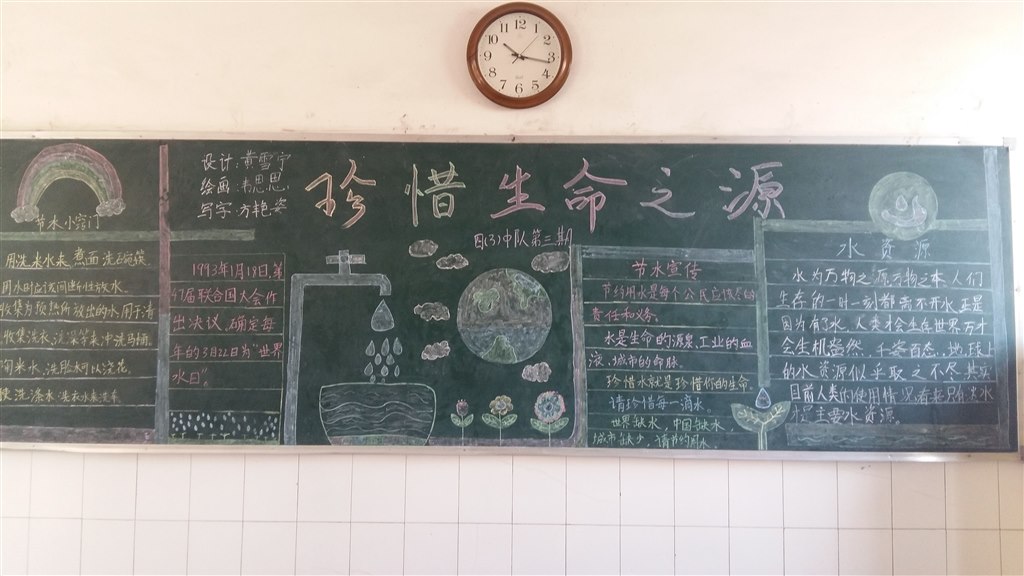 珍惜生命之源
设计:黄雪宁
绘画:韦思思
写字:方艳姿
四(3)中队第三期
节水小窍门
用洗米水来 煮面 洗碗筷
用水时应该间断性放水
收集为预热所放出的水,用于清
收集洗衣、洗澡等来冲洗马桶
淘米水,洗脸水可以浇花
洗涤水 洗衣水来洗车
1993年1月18日,第
47届联合国大会作
出决议,确定每
年的3月22日为“世界
水日”。
节水宣传
节约用水是每个公民应该尽的
责任和义务。
水是生命的源泉,工业的血
液,城市的命脉。
珍惜水就是珍惜你的生命。
请珍惜每一滴水。
世界缺水,中国缺水
城市缺少,请节约用水
水资源
水为万物之源万物之本,人们
生存的一时一刻都离不开水,正是
因为有了水,人类才会生在世界万才
会生机盎然,千姿百态,地球上
的水资源似乎取之不尽其实
目前人类的使用情况看来只有淡水
才是主要水资源。
12
1
2
3
4
5
6
7
8
9
10
11